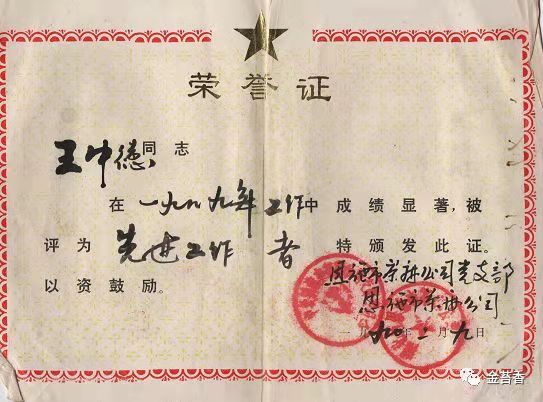 荣誉证
王中德同志
在一九八九年工作中成绩显著,被
评为先进工作者 特颁发此证。
以资鼓励。
恩施市茶麻公司党支部
恩施市茶麻公司
一九九〇年二月九日
金苔香